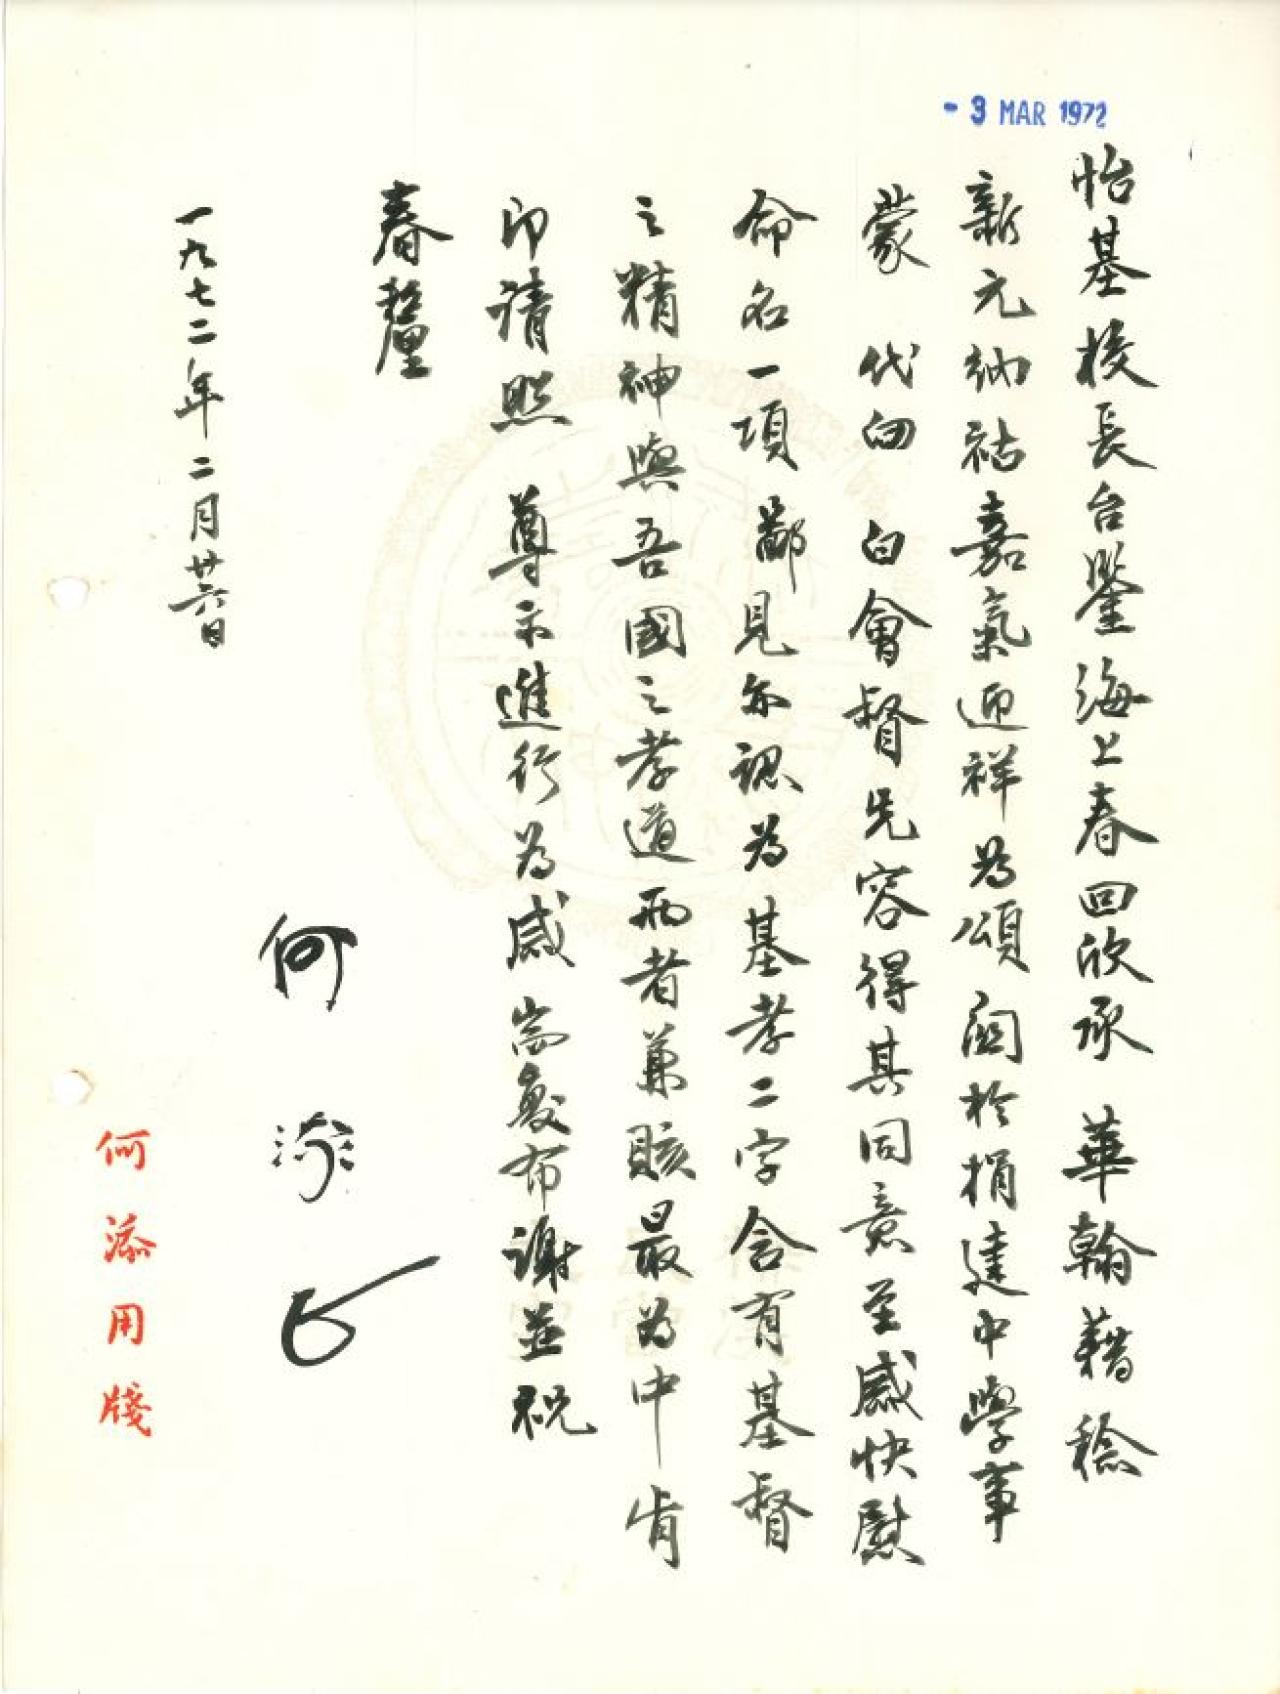 - 3 MAR 1972
怡基校長台鑒海上春回欣承 華翰藉稔
新元納祜嘉氣迎祥為頌関於捐建中學事
蒙 代向 白會督先容得其同意至感快慰
命名一項鄙見亦認為基孝二字含有基督
之精神與吾國之孝道兩者兼賅最為中肯
即請照 尊示進行為感耑敬布謝並祝
春釐
何添
一九七二年二月廿六日
何添用牋